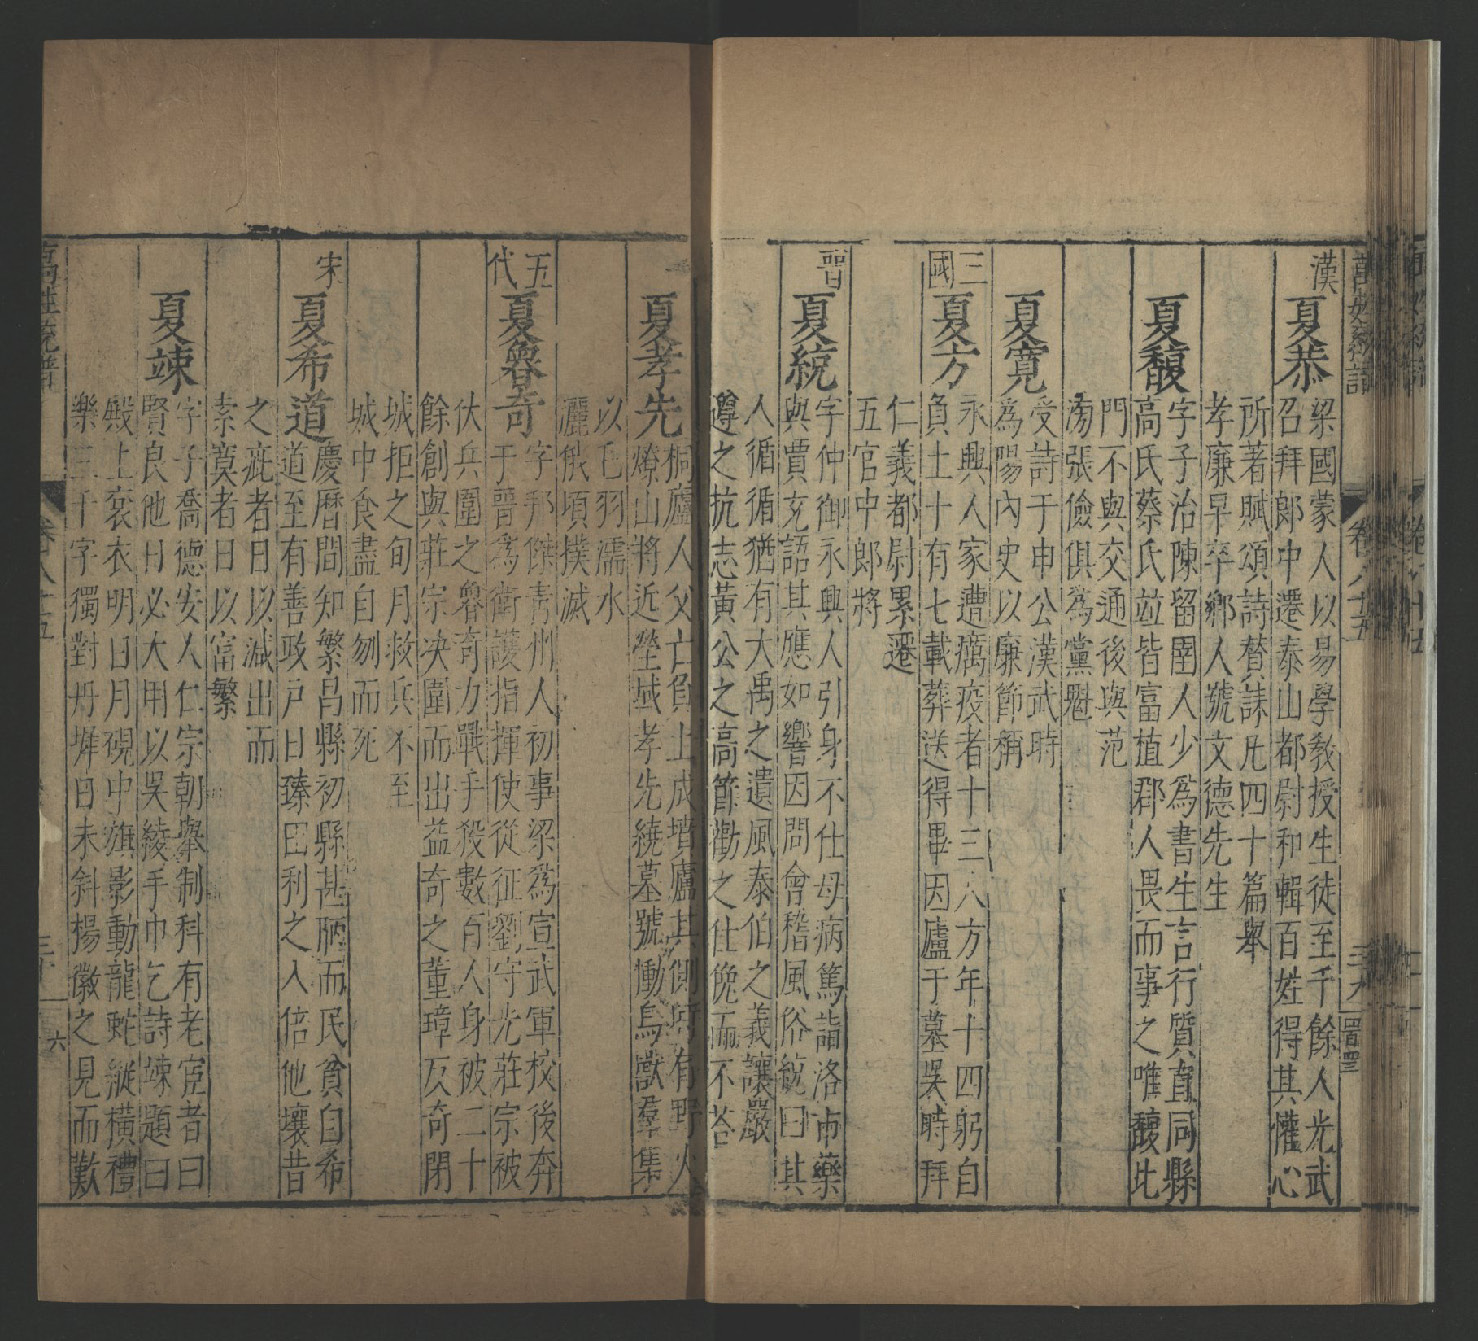 萬姓統譜
卷八十五
漢
夏恭
梁國蒙人以易學教授生徒至千餘人光武
召拜郎中遷泰山都尉和輯百姓得其懽心
所著賦頌詩賛誄凡四十篇舉
孝廉早卒鄉人號文德先生
夏馥
字子治陳留圉人少為書生言行質直同縣
高氏蔡氏並皆富埴郡人畏而事之唯馥比
門不與交通後與范
滂張儉俱為黨魁
夏寬
受詩于申公漢武時
為陽內史以廉節稱
三國
夏方
永興人家遭癘疫者十三人方年十四躬自
負土十有七載葬送得畢因廬于墓吳時拜
仁義都尉累遷
五官中郎將
晉
夏統
字仲御永興人引身不仕母病篤詣洛市藥
與賈充語其應如響因問會稽風俗統曰其
人循循猶有大禹之遺風泰伯之義讓嚴
遵之抗志黃公之高節勸之仕俛而不荅
夏孝先
桐廬人父亡負土成墳廬其側時有野火
燎山將近塋域孝先繞墓號慟鳥獸羣集
以毛羽濡水
灑俄頃撲滅
五代
夏魯奇
字邦傑青州人初事梁為宣武軍校後奔
于晉為衛護指揮使從征劉守光莊宗被
伏兵圍之魯奇力戰手殺數百人身被二十
餘創與莊宗決圍而出益奇之董璋反奇閉
城拒之旬月救兵不至
城中食盡自刎而死
宋
夏希道
慶曆間知繁昌縣初縣甚陋而民貧臼希
道至有善政戶日臻田利之入倍他壤昔
之疵者日以減出而
索寞者日以富繁
夏竦
字子喬德安人仁宗朝舉制科有老宦者曰
賢良他日必大用以吳綾手巾乞詩竦題曰
殿上袞衣明日月硯中旗影動龍蛇縱橫禮
樂三千字獨對丹墀日未斜楊徽之見而歎
萬姓統譜
卷八十五
六